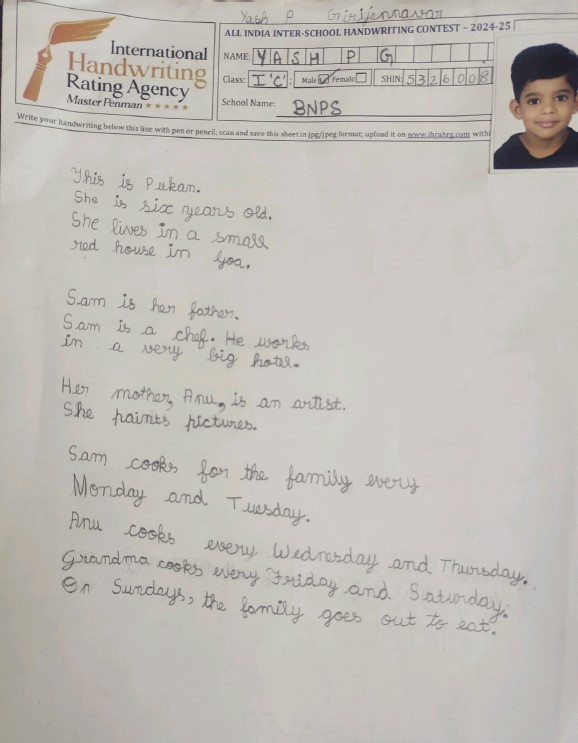 Yash P Girijannavar
International
Handwriting
Rating Agency
Master Penman ★★★★★
ALL INDIA INTER-SCHOOL HANDWRITING CONTEST - 2024-25
NAME: YASH P G
Class: I 'C' Male ☑ Female ☐ SHIN: 5326008
School Name: BNPS
Write your handwriting below this line with pen or pencil; scan and save this sheet in jpg/jpeg format; upload it on www.ihrahrg.com withi
This is Pukan.
She is six years old.
She lives in a small
red house in Goa.
Sam is her father.
Sam is a chef. He works
in a very big hotel.
Her mother, Anu, is an artist.
She paints pictures.
Sam cooks for the family every
Monday and Tuesday.
Anu cooks every Wednesday and Thursday.
Grandma cooks every Friday and Saturday.
On Sundays, the family goes out to eat.